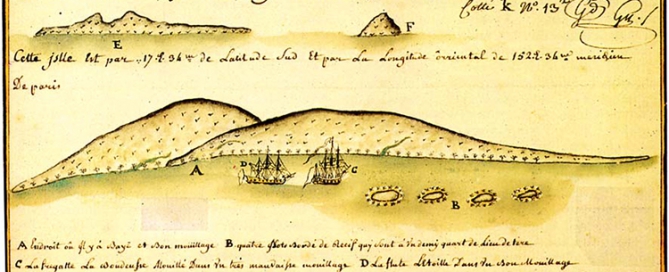 Cotté K N.º 13.
E
F
Cette jsle Est par 17.d. 34m de Latitude Sud Et par La Longitude orriental de 152.d. 34m meridien
De paris
D
C
A
B
A Endroit où jl y à Baye et Bon mouillage B. quatre jlots Bordé de Recif qui sont à Un demy quart de Lieu de téré
C La fregatte La Boudeuse Mouillé Dans Un très mauvaise mouillage D La flute L'Etoille Dans Un Bon Mouillage